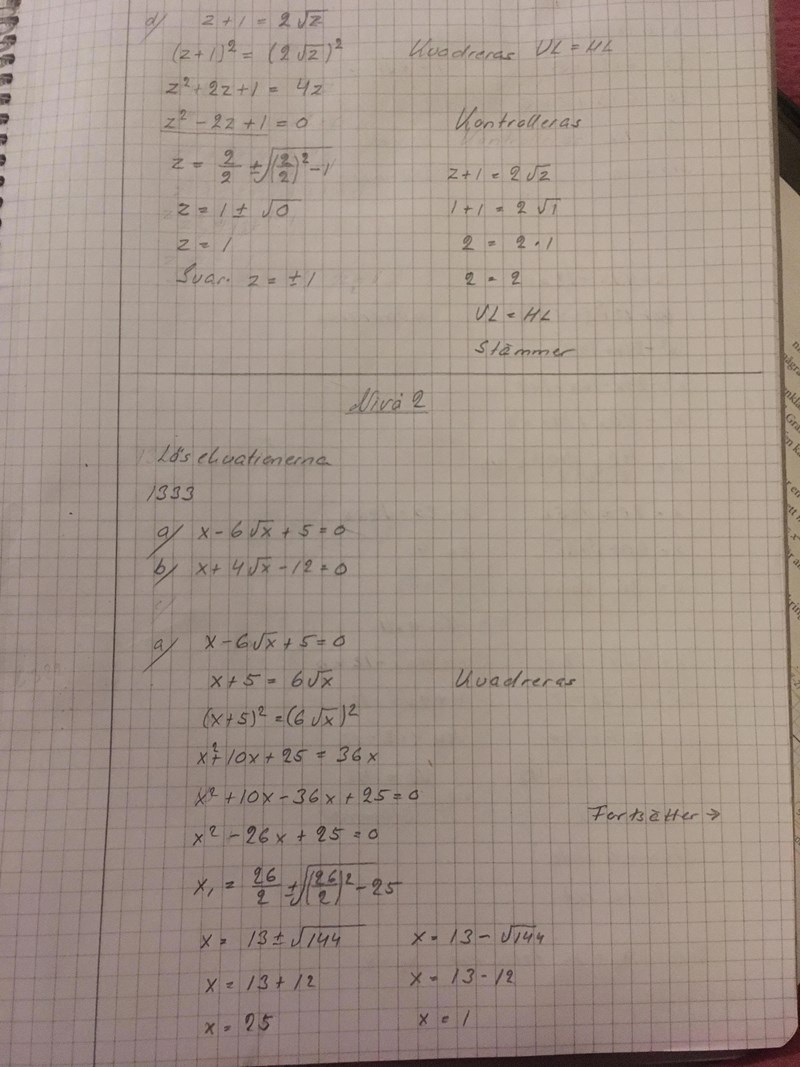 d) z + 1 = 2√z
(z+1)² = (2√z)² Kvadreras VL = HL
z² + 2z + 1 = 4z
z² - 2z + 1 = 0 Kontrolleras
z = 2/2 ± √((2/2)² - 1) z + 1 = 2√z
z = 1 ± √0 1 + 1 = 2√1
z = 1 2 = 2 · 1
Svar. z = ±1 2 = 2
VL = HL
Stämmer
Nivå 2
Lös ekvationerna
1333
a) x - 6√x + 5 = 0
b) x + 4√x - 12 = 0
a) x - 6√x + 5 = 0
x + 5 = 6√x Kvadreras
(x+5)² = (6√x)²
x² + 10x + 25 = 36x
x² + 10x - 36x + 25 = 0
Fortsätter →
x² - 26x + 25 = 0
x₁ = 26/2 ± √((26/2)² - 25
x = 13 ± √144 x = 13 - √144
x = 13 + 12 x = 13 - 12
x = 25 x = 1